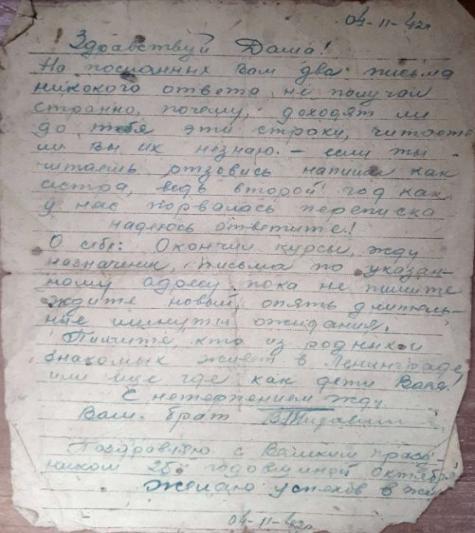 04-11-42г
Здравствуй Даша!
На посланных Вам два письма
никокого ответа не получал
странно, почему, доходят ли
до тебя эти строки, читаете
ли вы их незнаю. – если ты
читаешь отзовись напиши как
сестра, ведь второй год как
у нас порвалась переписка
надеюсь ответите!
О себе: Окончил курсы, жду
назначения, письма по указан-
ному адресу пока не пишите
ждите новый, опять длитель-
ные минуты ожидания.
Пишите кто из родных и
знакомых живет в Ленинграде
или еще где как дети Валя
С нетерпением жду
Вам. брат
Поздравляю с Великим празд-
ником 25 годовщиной октября
Желаю успехов в
04-11-42г